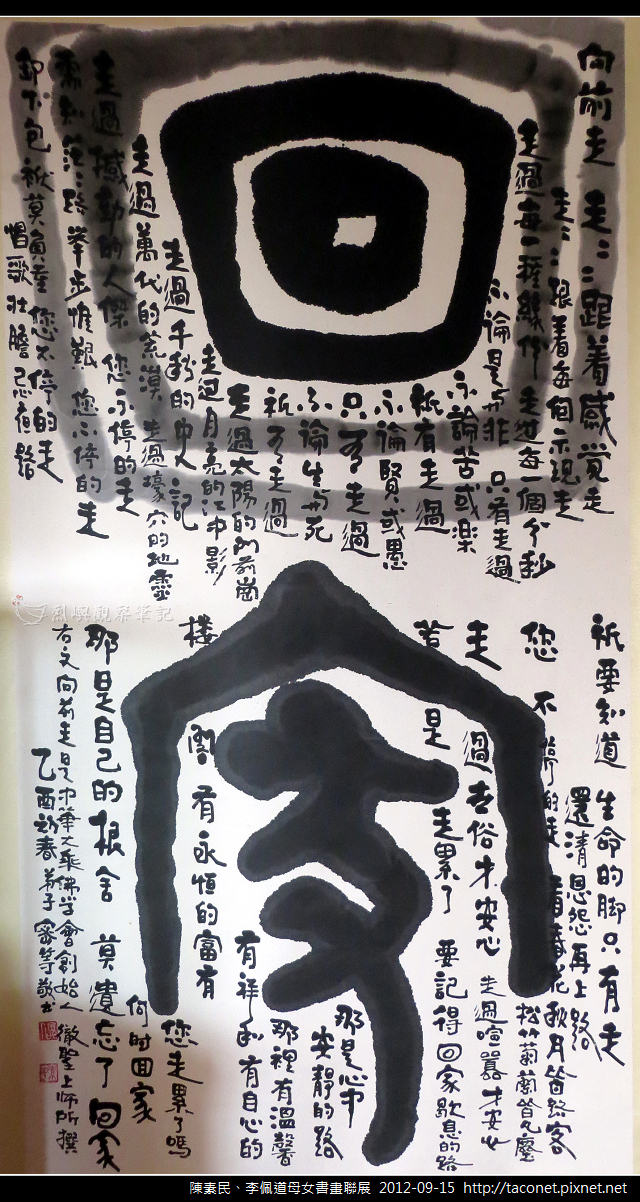 回家
向前走 走〻〻跟着感覺走
走〻〻跟着每個示現走
走過每一種緣伴 走過每一個分秒
不論是与非 只有走過
不論苦或楽
祇有走過
不論賢或愚
只有走過
不論生与死
祇有走過
走過太陽的山前崗
走过月亮的江中影
走過千秋的史人記
走過萬代的荒漠 走過壕穴的地靈
走過撼動的人傑 您不停的走
需知茫〻路举步惟艱 您不停的走
卸下包袱莫負重 您不停的走
唱歌壯膽忘夜路
祇要知道 生命的脚只有走
還清恩怨再上路
您 不停的走 看春花秋月皆路客
松竹菊蘭皆凡塵
走過世俗才安心 走過喧囂才安心
若是走累了 要記得回家歇息的路
那是心中
安靜的路
那裡有溫馨
有祥和有自心的
樓閣有永恒的富有
您走累了嗎
何时回家
那是自己的根舍 莫遺忘了回家
右文向前走是中華大乘佛学會創始人徹聖上师所撰
乙酉初春 弟子 密等敬书
烈嶼觀察筆記
陳素民、李佩道母女書畫聯展 2012-09-15 http://taconet.pixnet.net